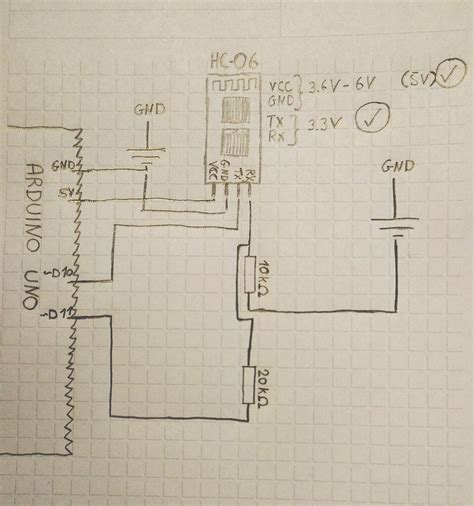 HC-06
VCC } 3.6V - 6V (5V) ✓
GND
TX } 3.3V ✓
RX
GND
VCC
GND
TX
RX
GND
GND
5V
ARDUINO UNO
~D10
~D11
10kΩ
20kΩ